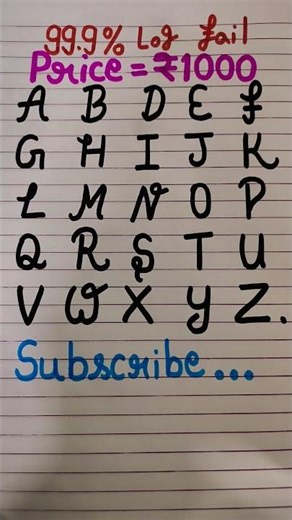 99.9% Log fail
Price = ₹1000
A B D E f
G H I J K
L M N O P
Q R Ş T U
V W X Y Z.
Subscribe...